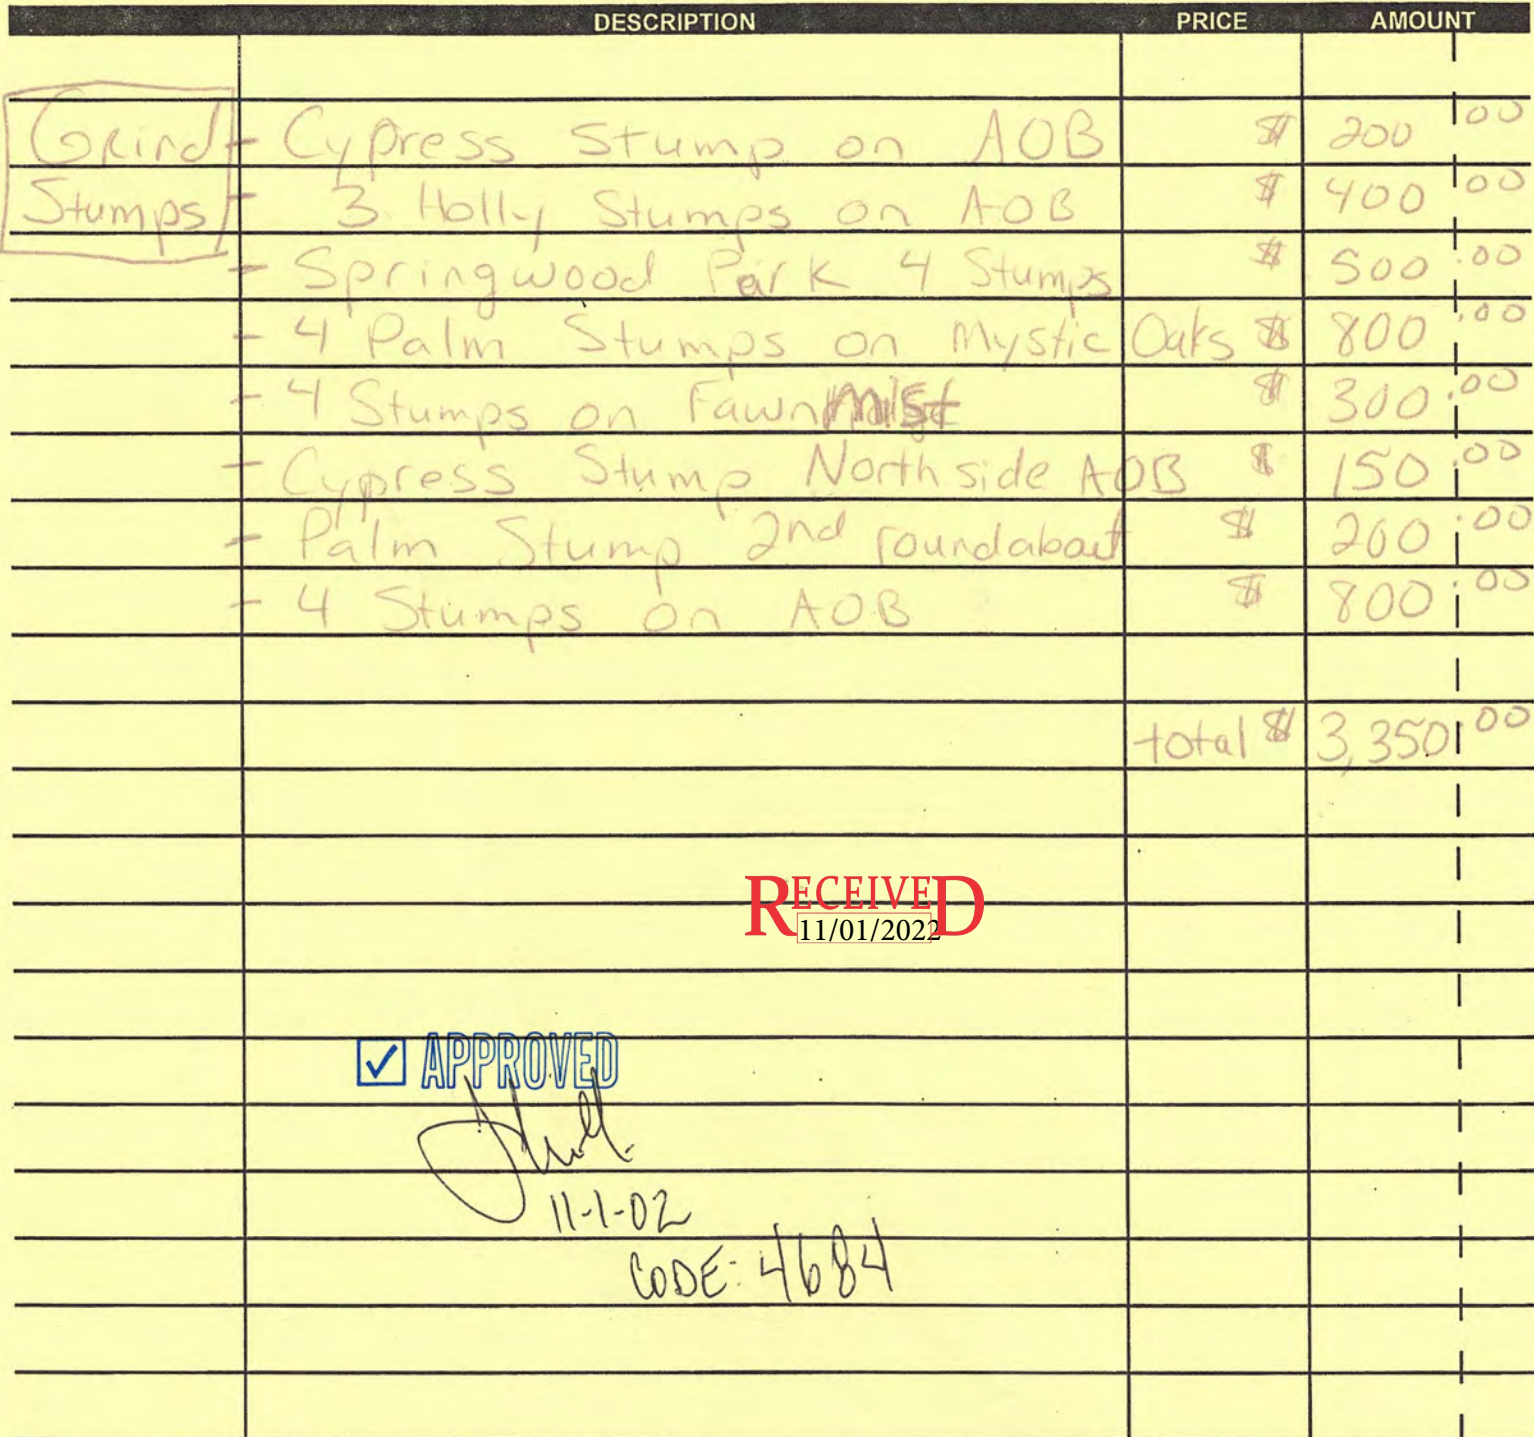 DESCRIPTION PRICE AMOUNT
Grind - Cypress Stump on AOB $ 200.00
Stumps - 3 Holly Stumps on AOB $ 400.00
- Springwood Park 4 Stumps $ 500.00
- 4 Palm Stumps on Mystic Oaks $ 800.00
- 4 Stumps on Fawnmist $ 300.00
- Cypress Stump North side AOB $ 150.00
- Palm Stump 2nd roundabout $ 200.00
- 4 Stumps on AOB $ 800.00
total $ 3,350.00
RECEIVED
11/01/2022
APPROVED
11-1-02
CODE: 4684